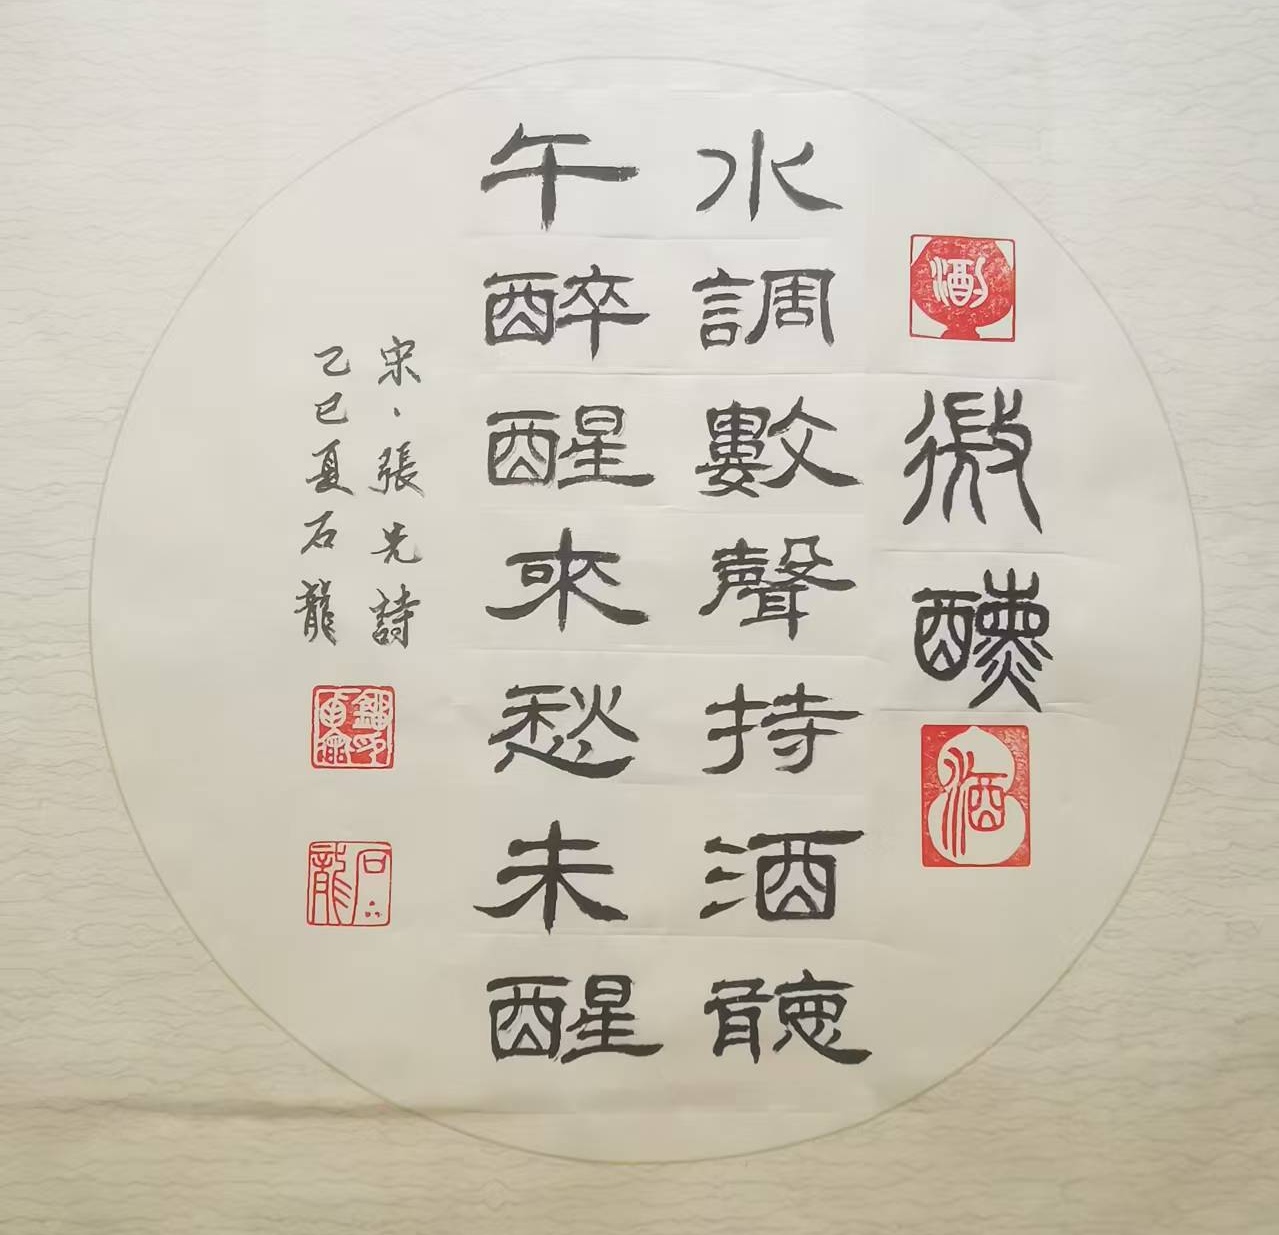 微醺
酒
水調數聲持酒聽
午醉醒來愁未醒
宋、張先詩
乙巳夏石龍
石龍